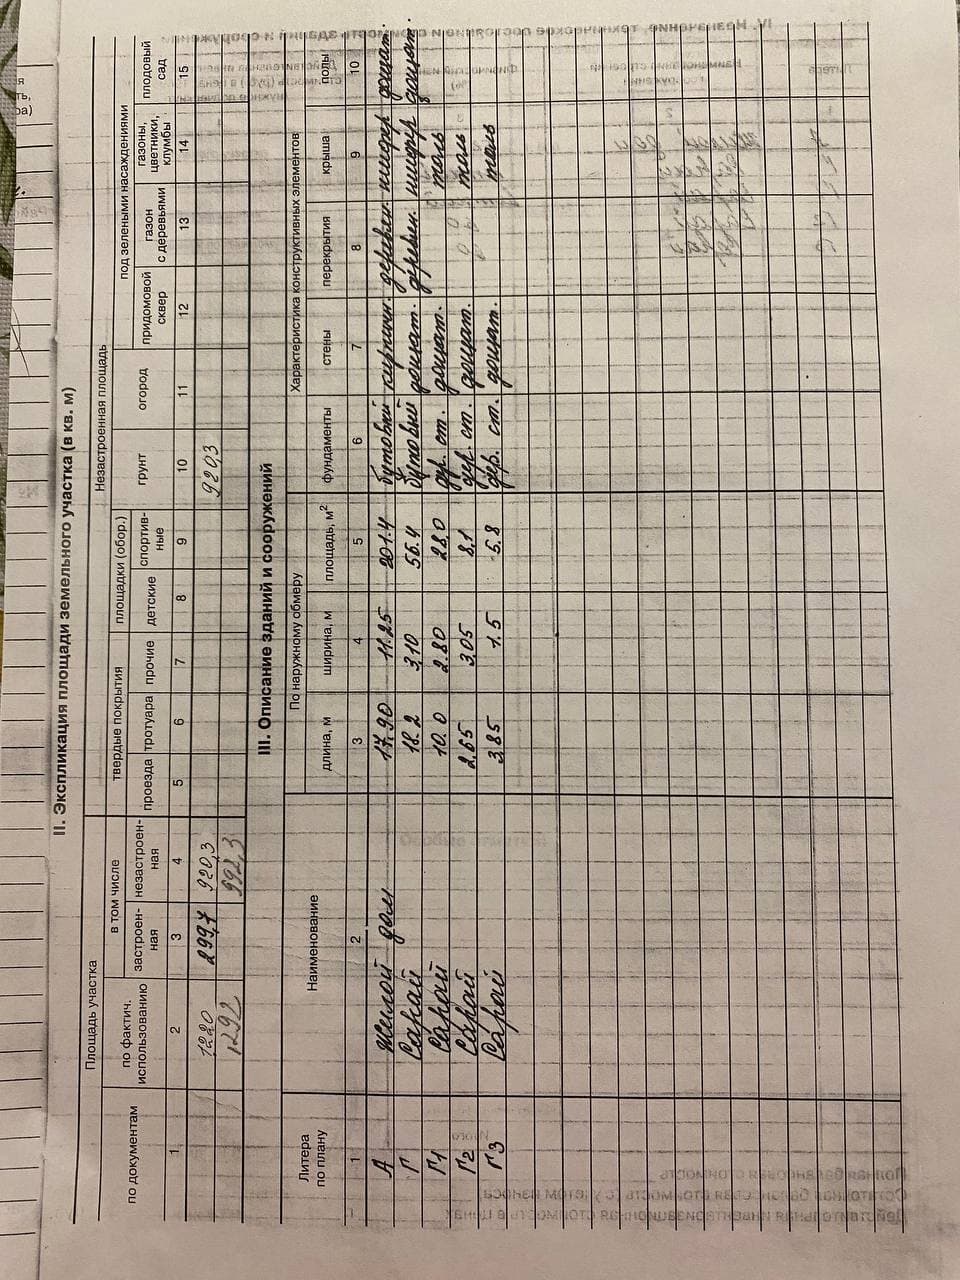 II. Экспликация площади земельного участка (в кв. м)
Площадь участка
Незастроенная площадь
по документам
по фактич. использованию
в том числе
твердые покрытия
площадки (обор.)
грунт
огород
под зелеными насаждениями
застроен-ная
незастроен-ная
проезда
тротуара
прочие
детские
спортив-ные
придомовой сквер
газон с деревьями
газоны, цветники, клумбы
плодовый сад
1 2 3 4 5 6 7 8 9 10 11 12 13 14 15
1220 299,7 920,3 920,3
1292 992,3
III. Описание зданий и сооружений
Литера по плану
Наименование
По наружному обмеру
Характеристика конструктивных элементов
длина, м
ширина, м
площадь, м²
фундаменты
стены
перекрытия
крыша
полы
1 2 3 4 5 6 7 8 9 10
А Жилой дом 17.90 11.25 201.4 бутовый кирпичн. деревян. шифер дощат.
Г Сарай 18.2 3,10 56.4 бутовый дощат. деревян. шифер дощат.
Г1 Сарай 10.0 2.80 28,0 дер. ст. дощат. толь
Г2 Сарай 2.65 3,05 8,1 дер. ст. дощат. толь
Г3 Сарай 3,85 1.5 5.8 дер. ст. дощат. толь